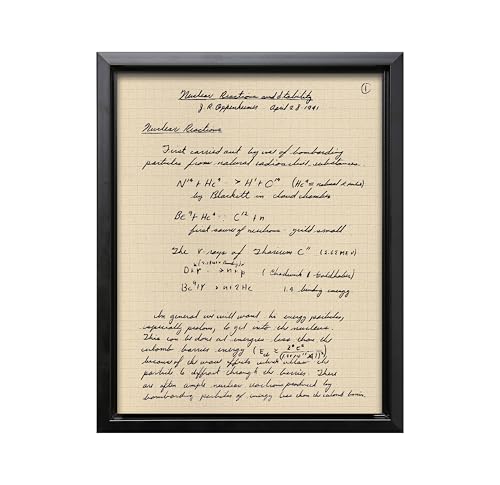 ①
Nuclear Reactions and Stability
J. R. Oppenheimer April 28 1941
Nuclear Reactions
First carried out by use of bombarding
particles from natural radioactive substances.
N¹⁴ + He⁴ → H¹ + O¹⁷ (He⁴ = natural α)
by Blackett in cloud chamber
Be⁹ + He⁴ → C¹² + n
first source of neutrons - yield small
The γ rays of Thorium C" (2.62 MEV)
D + γ → n + p (Chadwick & Goldhaber)
Be⁹ + γ → n + 2He 1.9 binding energy
In general we will want hi energy particles,
especially protons, to get into the nucleus.
This can be done at energies less than the
coulomb barrier energy
because of the wave effects which allow the
particle to diffract through the barrier. There
are often ample nuclear reactions produced by
bombarding particles of energy less than the coulomb barrier.